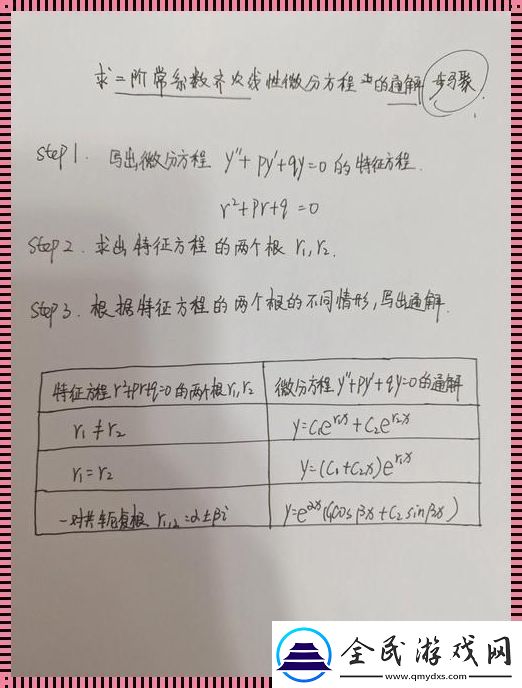 求二阶常系数齐次线性微分方程的通解 步骤
Step 1. 写出微分方程 y''+py'+qy=0 的特征方程.
r²+pr+q=0
Step 2. 求出特征方程的两个根 r₁,r₂.
Step 3. 根据特征方程的两个根的不同情形,写出通解.
特征方程 r²+pr+q=0 的两个根 r₁,r₂ 微分方程 y''+py'+qy=0 的通解
r₁≠r₂ y=C₁e^{r₁x}+C₂e^{r₂x}
r₁=r₂ y=(C₁+C₂x)e^{r₁x}
一对共轭复根 r₁,₂=α±βi y=e^{αx}(C₁cosβx+C₂sinβx)
全民游戏网
www.qmydxs.com